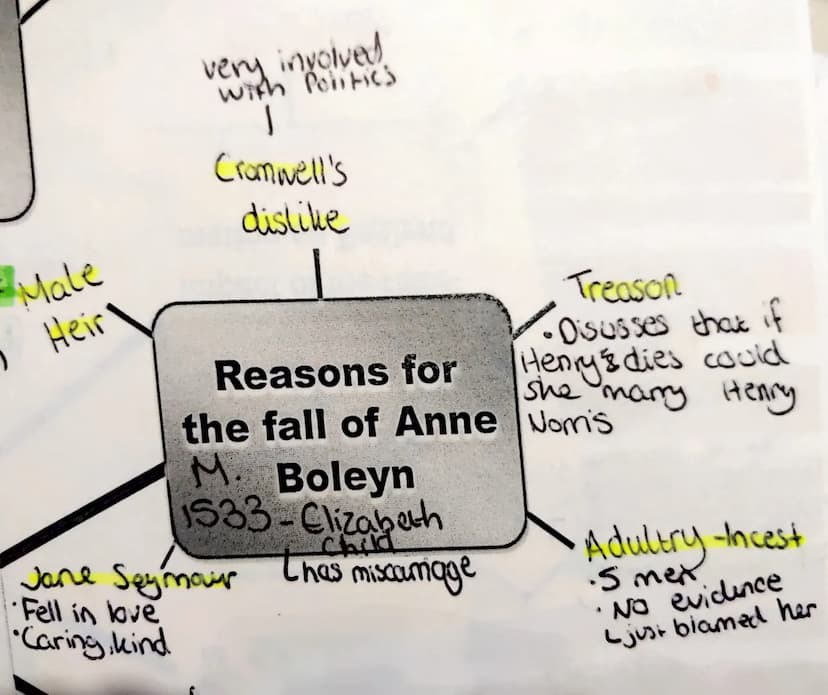 very involved
with Politics
Cromwell's
dislike
Male
Heir
Treason
• Disusses that if
Henry dies could
she marry Henry
Norris
Reasons for
the fall of Anne
Boleyn
M.
1533 - Elizabeth
Child
has miscarriage
Jane Seymour
• Fell in love
• Caring, kind
Adultry - Incest
• 5 men
• No evidence
just blamed her